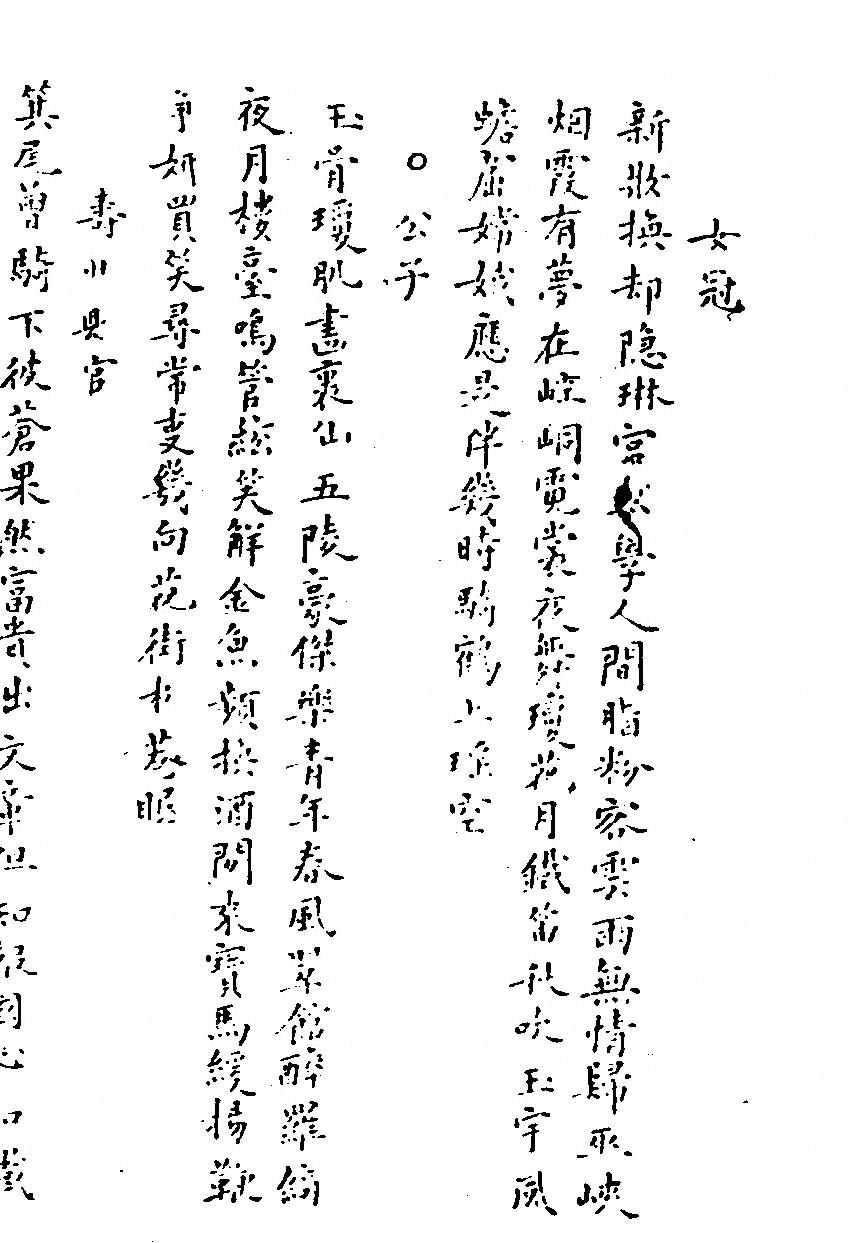 女冠
新妝換却隐琳宮學人間脂粉容雲雨無情歸巫峽
烟霞有夢在崆峒霓裳夜舞瓊花月鐵笛秋吹玉宇風
蟾窟嫦娥應是伴幾時騎鶴上瑤空
○公子
玉骨瓊肌畵裏仙五陵豪傑樂青年春風翠館醉羅綺
夜月楼臺鳴管絃笑解金魚頻換酒閒來寳馬緩揚鞭
争妍買笑尋常事幾向花街折惹眠
壽縣官
箕尾曾騎下彼蒼果然富貴出文章但知報國心口載